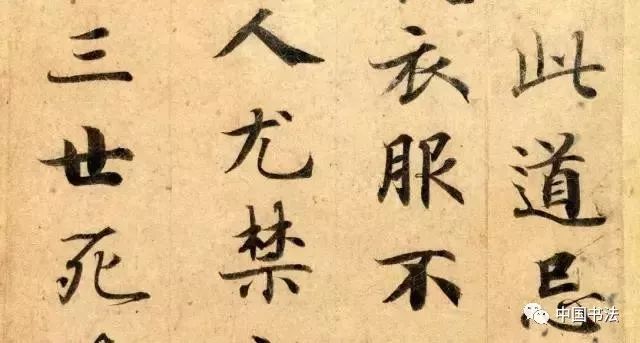 此道忌
衣服不
人尤禁
三世死
中国书法